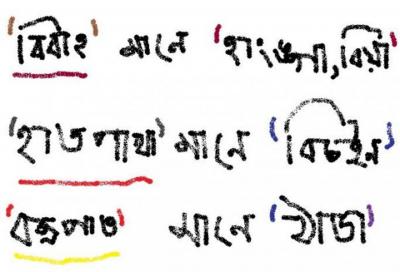 'বিবাহ' মানে 'হাংঙ্গা, বিয়া'
'হাতপাখা' মানে 'বিচইন'
'বজ্রপাত' মানে 'ঠাডা'